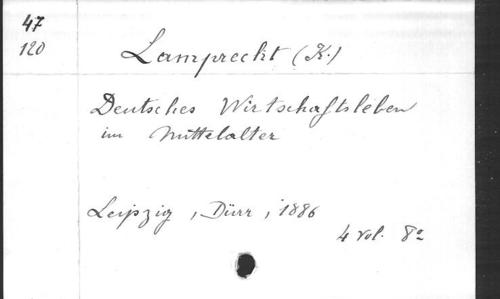 47
120
Lamprecht (K.)
Deutsches Wirtschaftsleben
im Mittelalter
Leipzig, Dürr, 1886
4 vol. 8º